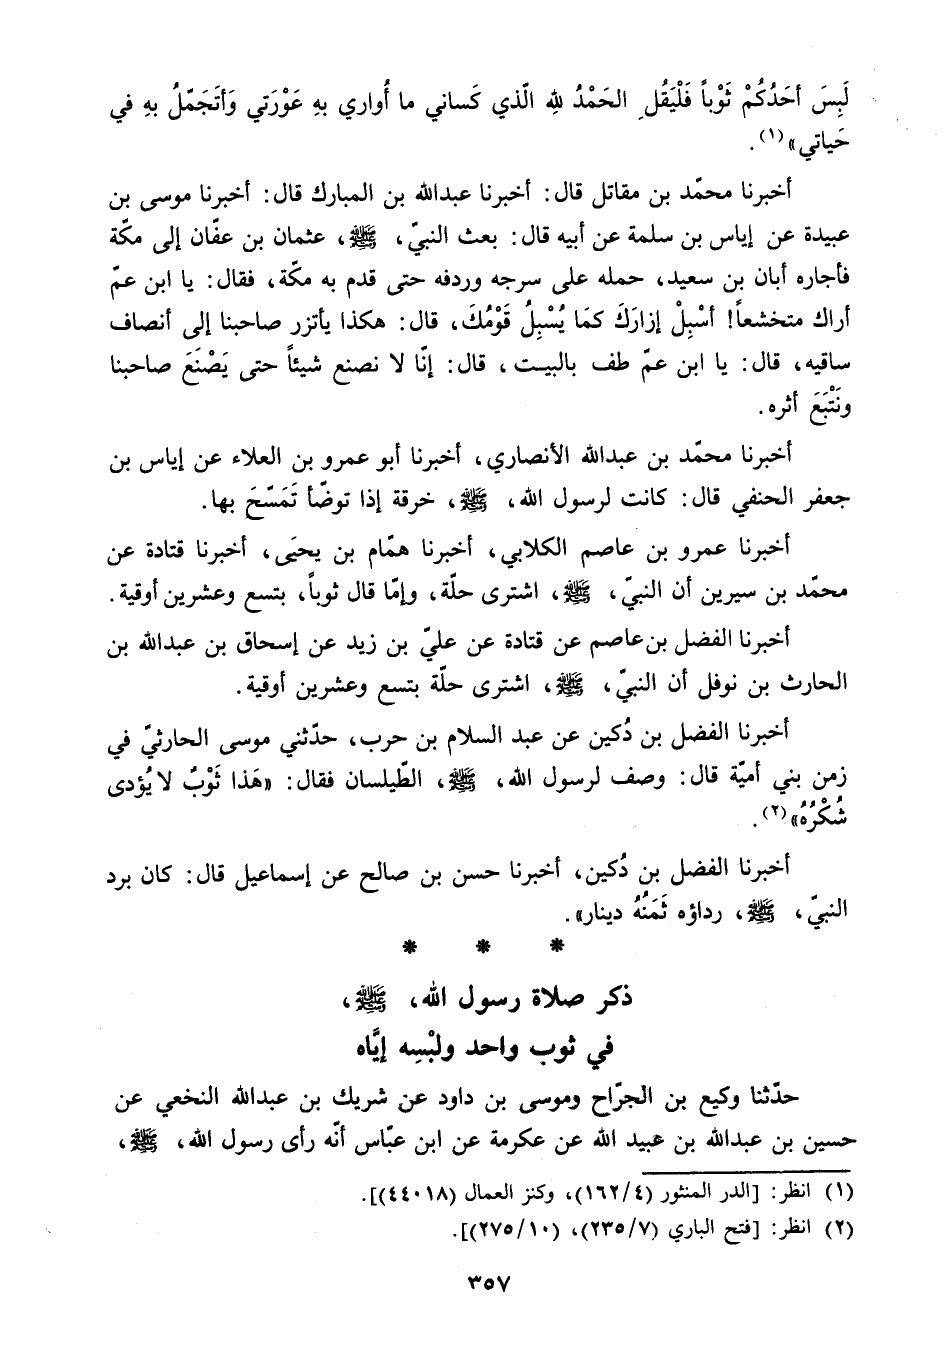 لَبِسَ أحَدُكُمْ ثَوْباً فَلْيَقُلِ الحَمْدُ لِلهِ الّذي كَساني ما أُواري بهِ عَوْرَتي وَأتَجَمّلُ بهِ في
حَياتي»(١).
أخبرنا محمّد بن مقاتل قال: أخبرنا عبدالله بن المبارك قال: أخبرنا موسى بن
عبيدة عن إياس بن سلمة عن أبيه قال: بعث النبيّ، ﷺ، عثمان بن عفّان إلى مكّة
فأجاره أبان بن سعيد، حمله على سرجه وردفه حتى قدم به مكّة، فقال: يا ابن عمّ
أراك متخشعاً! أسْبِلْ إزارَكَ كمَا يُسْبِلُ قَوْمُكَ، قال: هكذا يأتزر صاحبنا إلى أنصاف
ساقيه، قال: يا ابن عمّ طف بالبيت، قال: إنّا لا نصنع شيئاً حتى يَصْنَعَ صاحبنا
ونَتْبَعَ أثره.
أخبرنا محمّد بن عبدالله الأنصاري، أخبرنا أبو عمرو بن العلاء عن إياس بن
جعفر الحنفي قال: كانت لرسول الله، ﷺ، خرقة إذا توضّأ تَمَسّحَ بها.
أخبرنا عمرو بن عاصم الكلابي، أخبرنا همّام بن يحيَى، أخبرنا قتادة عن
محمّد بن سيرين أن النبيّ، ﷺ، اشترى حلّة، وإمّا قال ثوباً، بتسع وعشرين أوقية.
أخبرنا الفضل بن عاصم عن قتادة عن عليّ بن زيد عن إسحاق بن عبدالله بن
الحارث بن نوفل أن النبيّ، ﷺ، اشترى حلّة بتسع وعشرين أوقية.
أخبرنا الفضل بن دُكين عن عبد السلام بن حرب، حدّثني موسى الحارثيّ في
زمن بني أميّة قال: وصف لرسول الله، ﷺ، الطّيلسان فقال: «هَذا ثَوْبٌ لا يُؤدى
شُكْرُهُ»(٢).
أخبرنا الفضل بن دُكين، أخبرنا حسن بن صالح عن إسماعيل قال: كان برد
النبيّ، ﷺ، رداؤه ثَمَنُهُ دينار».
* * *
ذكر صلاة رسول الله، ﷺ،
في ثوب واحد ولبْسِه إيَّاه
حدّثنا وكيع بن الجرّاح وموسى بن داود عن شريك بن عبدالله النخعي عن
حسين بن عبدالله بن عبيد الله عن عكرمة عن ابن عبّاس أنّه رأى رسول الله، ﷺ،
(١) انظر: [الدر المنثور (١٦٢/٤)، وكنز العمال (٤٤٠١٨)].
(٢) انظر: [فتح الباري (٢٣٥/٧)، (٢٧٥/١٠)].
٣٥٧